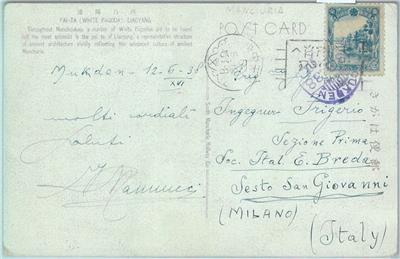 PAI-TA (WHITE PAGODA) LIAOYANG
Throughout Manchukuo a number of White Pagodas are to be found
but the most splendid is the pai ta of Liaoyang, a representative structure
of ancient architecture vividly reflecting the advanced culture of ancient
Manchuria.
MANCIURIA
POST CARD
はがき便郵
Mukden - 12-6-36
XVI
molti cordiali
saluti
South Manchuria Railway
Ingegner Frigerio
Sezione Prima
Soc. Ital E. Breda
Sesto San Giovanni
(MILANO)
(Italy)